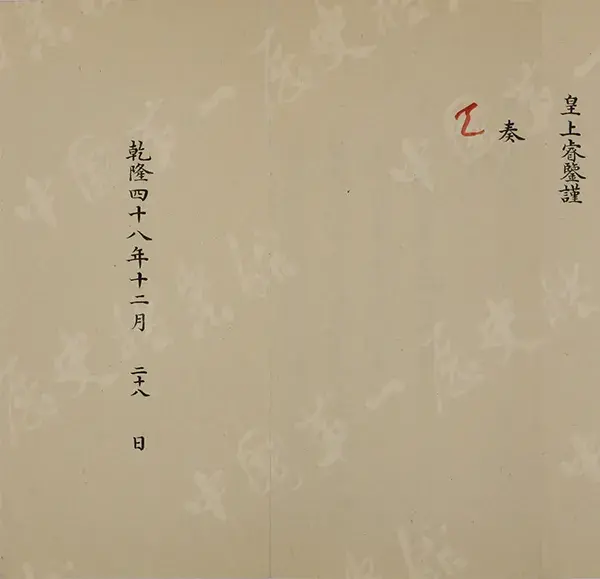 皇上睿鑒謹
奏
乾隆四十八年十二月 二十八 日